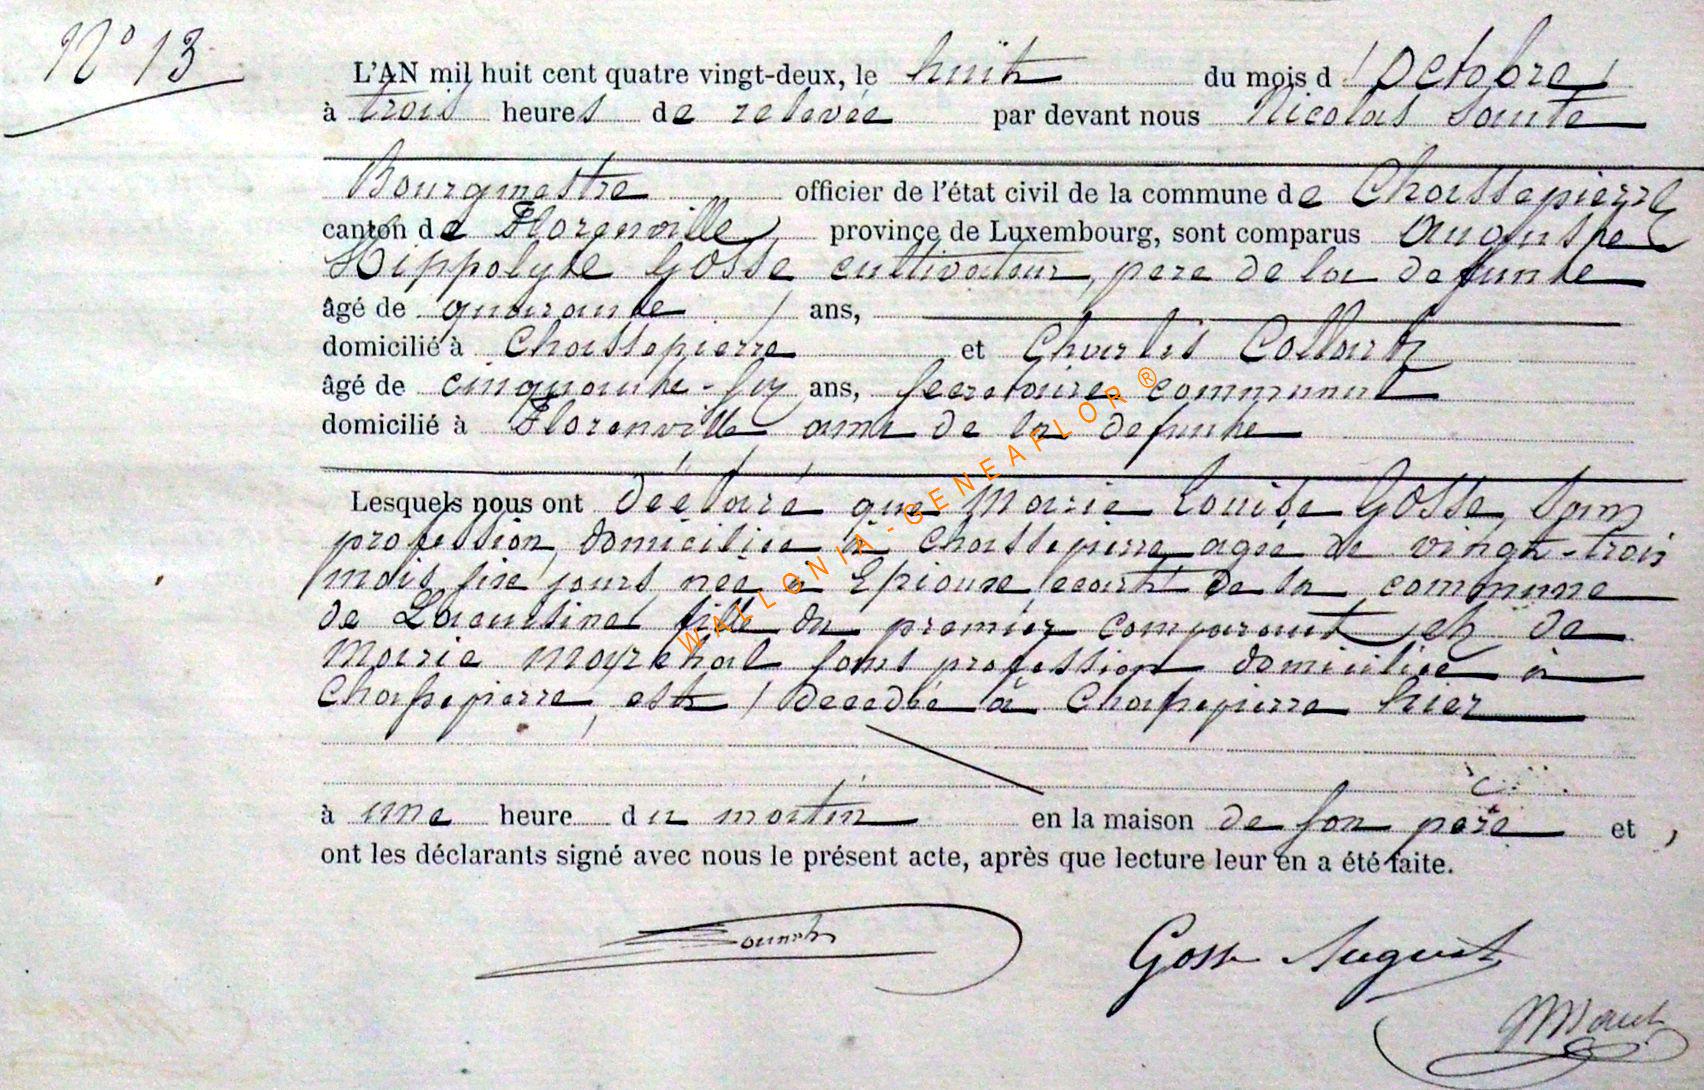 N° 13
L'AN mil huit cent quatre vingt-deux, le huit du mois d'Octobre
à trois heures de relevée par devant nous Nicolas
Bourgmestre officier de l'état civil de la commune de Chassepierre
canton de Florenville province de Luxembourg, sont comparus Auguste
Hippolyte Gosse cultivateur, père de la defunte
âgé de quarante ans,
domicilié à Chassepierre et Charles Collart
âgé de cinquante-six ans, secretaire communal
domicilié à Florenville ami de la defunte
Lesquels nous ont déclaré que Marie Louise Gosse sans
profession, domiciliée à Chassepierre agée de vingt-trois
mois six jours née à Epioux, ecart de la commune
de fille du premier comparant et de
Marie sans profession domiciliée à
Chassepierre, est decedée à Chassepierre hier
à une heure du matin en la maison de son père et
ont les déclarants signé avec nous le présent acte, après que lecture leur en a été faite.
Gosse August
WALLONIA-GENEAFLOR ®